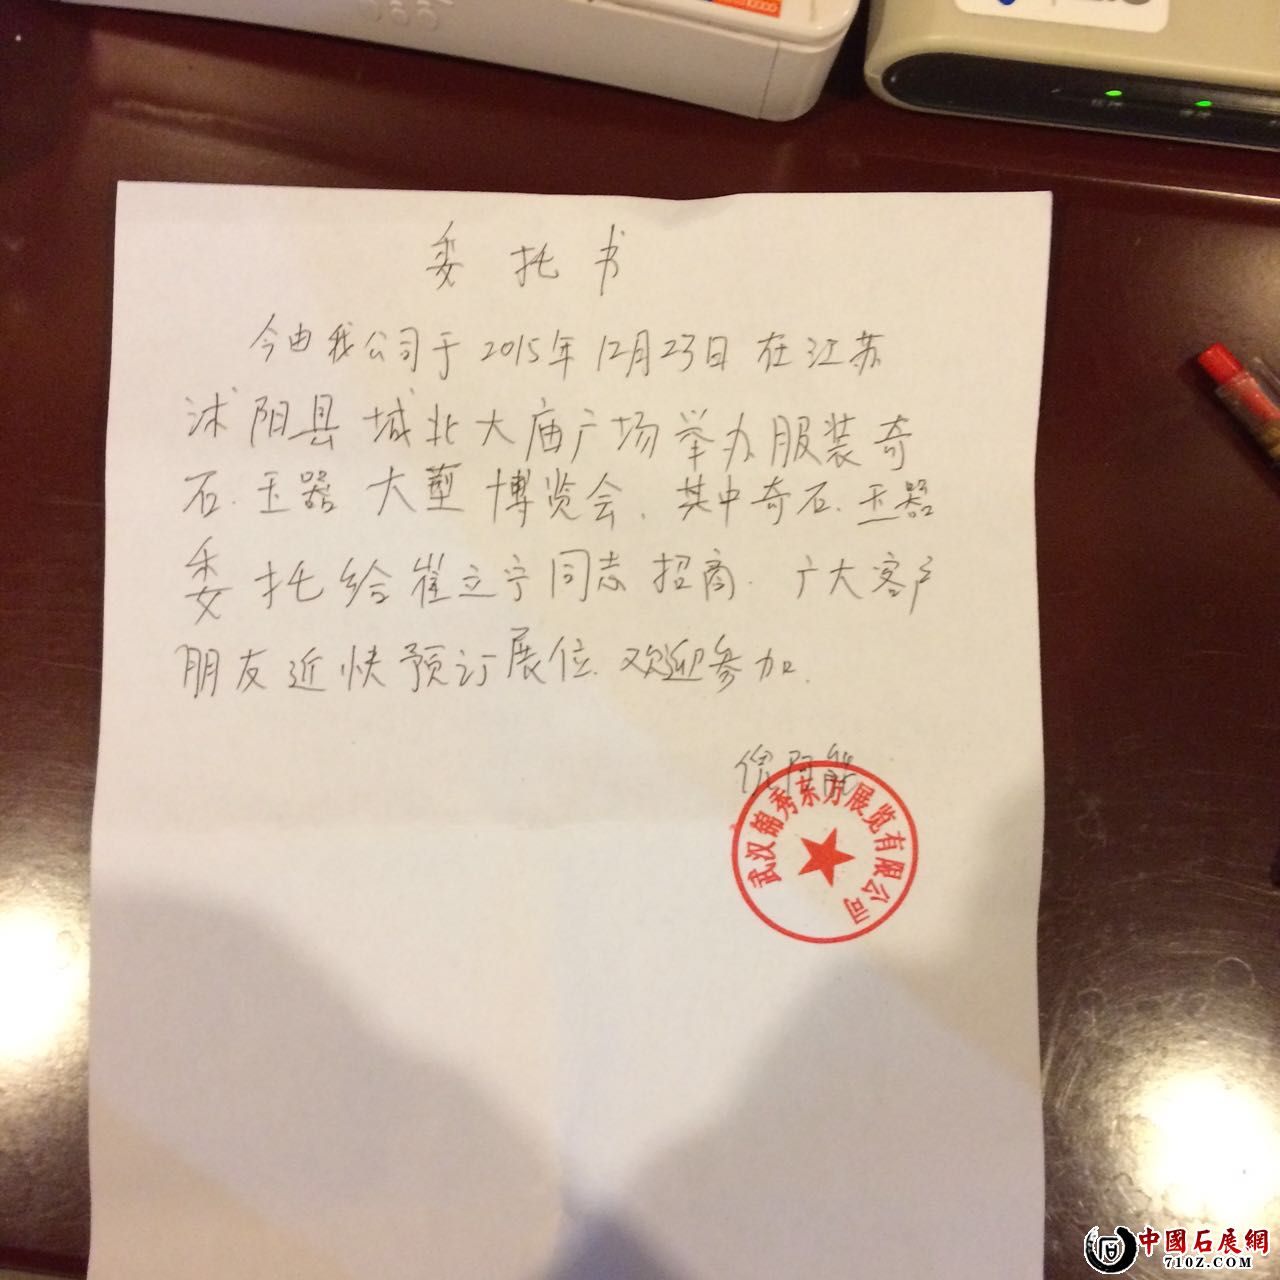 委托书
今由我公司于2015年12月23日在江苏
沭阳县城北大庙广场举办服装奇
石.玉器大型博览会.其中奇石.玉器
委托给崔立宁同志招商.广大客户
朋友近快预订展位.欢迎参加.
倪阿能
武汉锦秀东方展览有限公司
中國石展網
710Z.COM